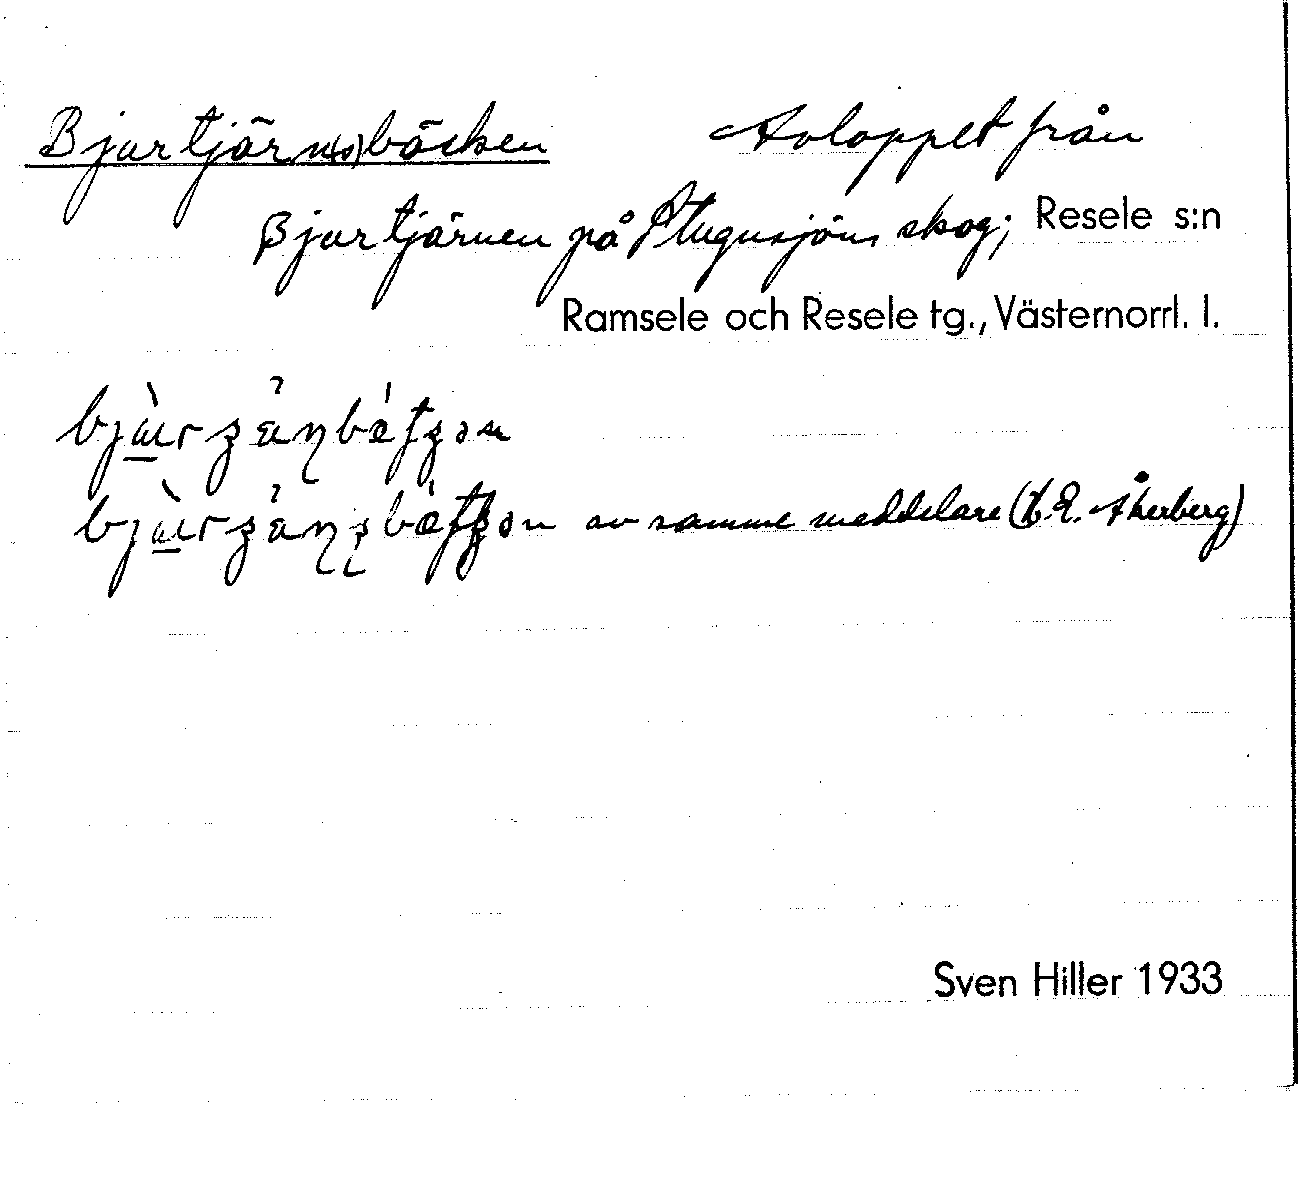 Bjurtjärn(s)bäcken Avloppet från
Bjurtjärnen på Stugusjöns skog; Resele s:n
Ramsele och Resele tg., Västernorrl. l.
av samme meddelare (J.E. Åkerberg)
Sven Hiller 1933